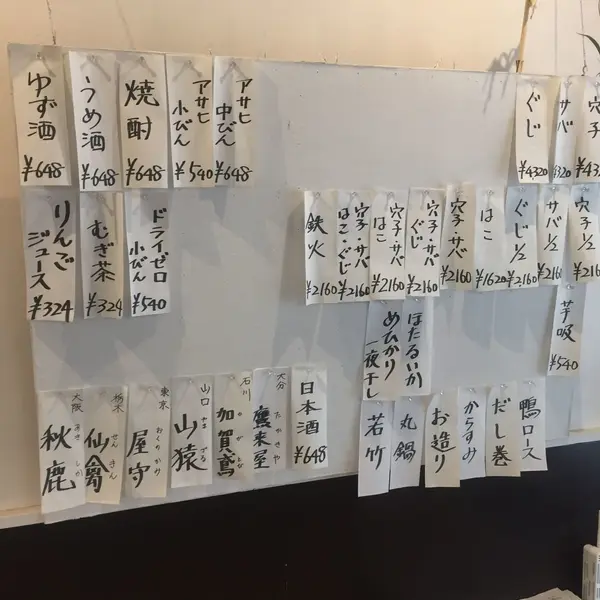 穴子
¥432
サバ
4320
ぐじ
¥4320
アサヒ
中びん
¥648
アサヒ
小びん
¥540
焼酎
¥648
うめ酒
¥648
ゆず酒
¥648
穴子½
¥216
サバ½
¥2160
ぐじ½
¥2160
はこ
¥1620
穴子・サバ
¥2160
穴子・サバ
ぐじ
¥2160
穴子・サバ
はこ
¥2160
穴子・サバ
はこ・ぐじ
¥2160
鉄火
¥2160
ドライゼロ
小びん
¥540
むぎ茶
¥324
りんご
ジュース
¥324
芋吸
¥540
ほたるいか
めひかり
一夜干し
鴨ロース
だし巻
からすみ
お造り
丸鍋
若竹
日本酒
¥648
大分
鷹来屋
たかきや
石川
加賀鳶
かがとび
山口
山猿
やまざる
東京
屋守
おくのかみ
栃木
仙禽
せんきん
大阪
秋鹿
あきしか